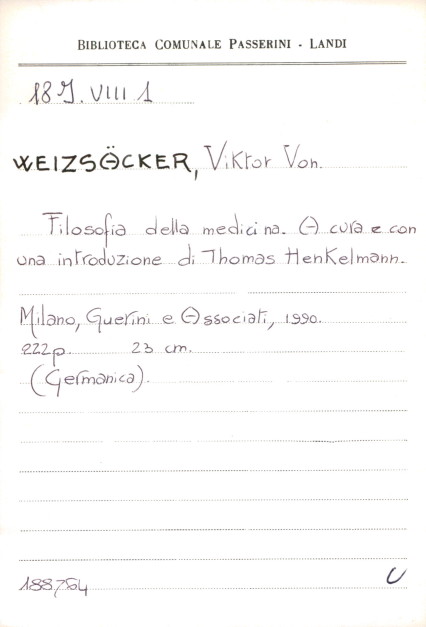 BIBLIOTECA COMUNALE PASSERINI - LANDI
18 J. VIII 1
WEIZSÄCKER, Viktor Von.
Filosofia della medicina. A cura e con
una introduzione di Thomas Henkelmann.
Milano, Guerini e Associati, 1990.
222p. 23 cm.
(Germanica).
188764
U